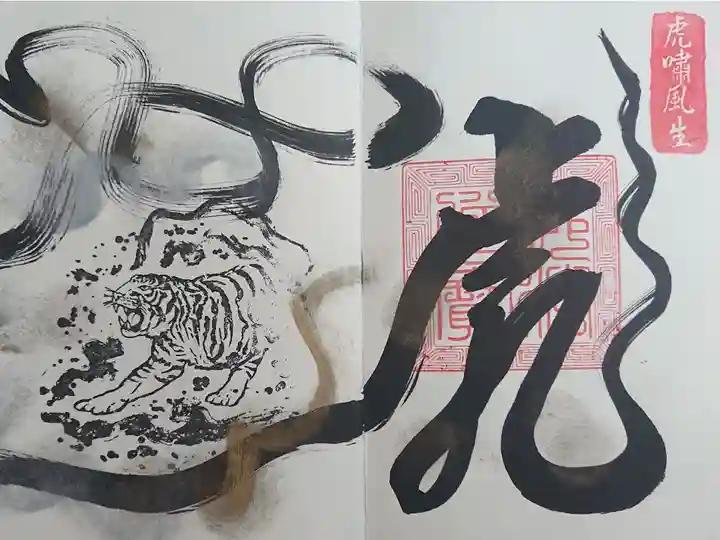 虎嘯風生
虎